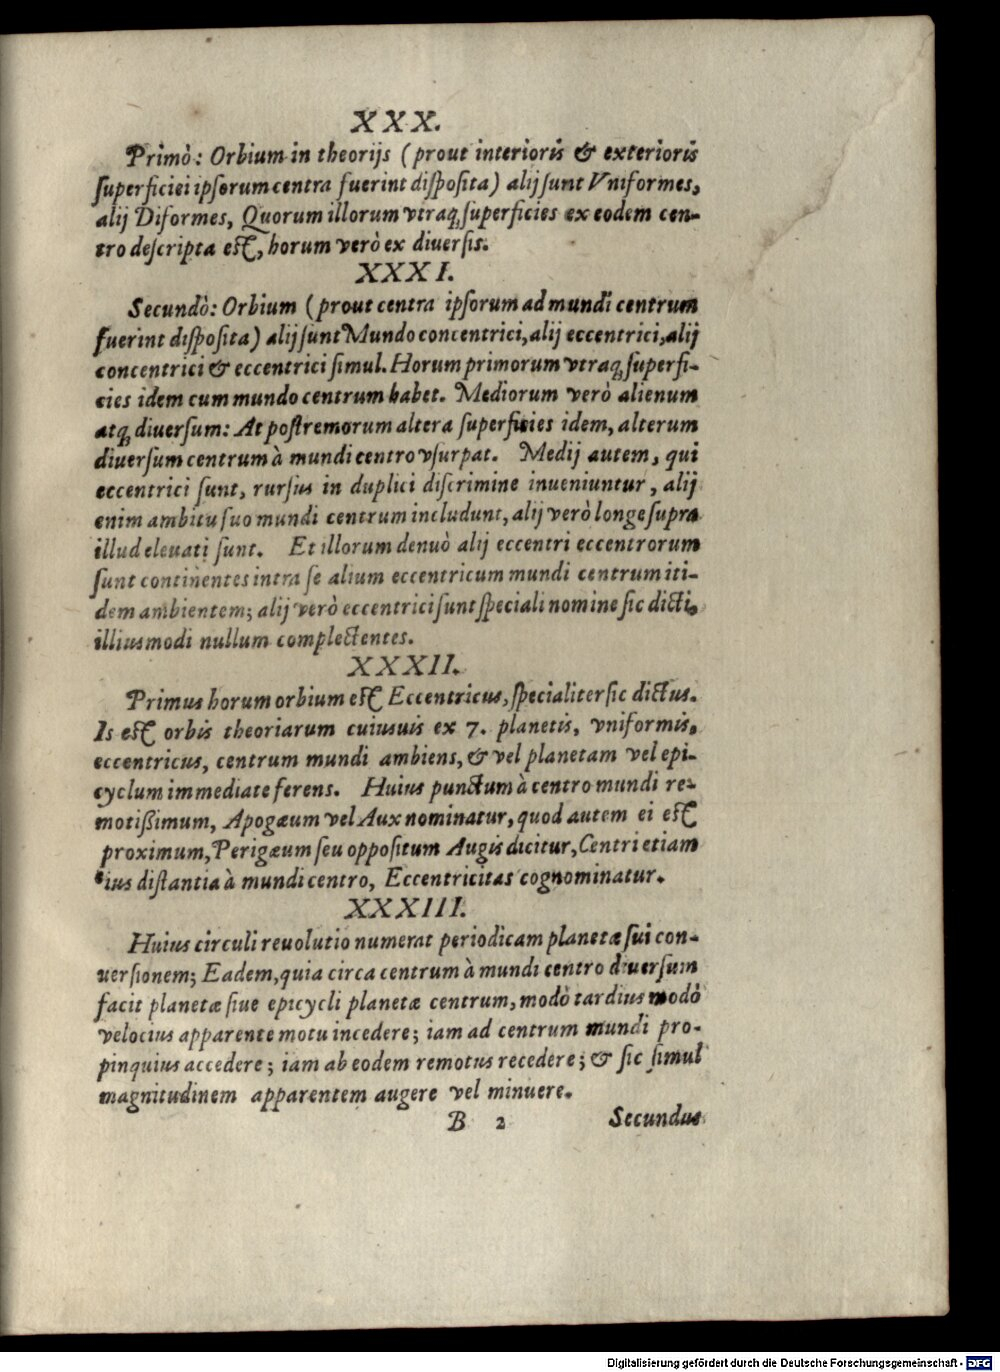 XXX.
Primò: Orbium in theorijs (prout interioris & exterioris
ſuperficiei ipſorum centra fuerint diſpoſita) alij ſunt Vniformes,
alij Diformes, Quorum illorum vtraq; ſuperficies ex eodem cen-
tro deſcripta eſt, horum verò ex diuerſis.
XXXI.
Secundò: Orbium (prout centra ipſorum ad mundi centrum
fuerint diſpoſita) alij ſunt Mundo concentrici, alij eccentrici, alij
concentrici & eccentrici ſimul. Horum primorum vtraq; ſuperfi-
cies idem cum mundo centrum habet. Mediorum verò alienum
atq; diuerſum: At poſtremorum altera ſuperficies idem, alterum
diuerſum centrum à mundi centro vſurpat. Medij autem, qui
eccentrici ſunt, rurſus in duplici diſcrimine inueniuntur, alij
enim ambitu ſuo mundi centrum includunt, alij verò longe ſupra
illud eleuati ſunt. Et illorum denuò alij eccentri eccentrorum
ſunt continentes intra ſe alium eccentricum mundi centrum iti-
dem ambientem; alij verò eccentrici ſunt ſpeciali nomine ſic dicti,
illiusmodi nullum complectentes.
XXXII.
Primus horum orbium eſt Eccentricus, ſpecialiter ſic dictus.
Is eſt orbis theoriarum cuiusuis ex 7. planetis, vniformis,
eccentricus, centrum mundi ambiens, & vel planetam vel epi-
cyclum immediate ferens. Huius punctum à centro mundi re-
motißimum, Apogæum vel Aux nominatur, quod autem ei eſt
proximum, Perigæum ſeu oppoſitum Augis dicitur, Centri etiam
eius diſtantia à mundi centro, Eccentricitas cognominatur.
XXXIII.
Huius circuli reuolutio numerat periodicam planetæ ſui con-
uerſionem; Eadem, quia circa centrum à mundi centro diuerſum
facit planetæ ſiue epicycli planetæ centrum, modò tardius modò
velocius apparente motu incedere; iam ad centrum mundi pro-
pinquius accedere; iam ab eodem remotus recedere; & ſic ſimul
magnitudinem apparentem augere vel minuere.
B 2 Secundus
Digitalisierung gefördert durch die Deutsche Forschungsgemeinschaft - DFG